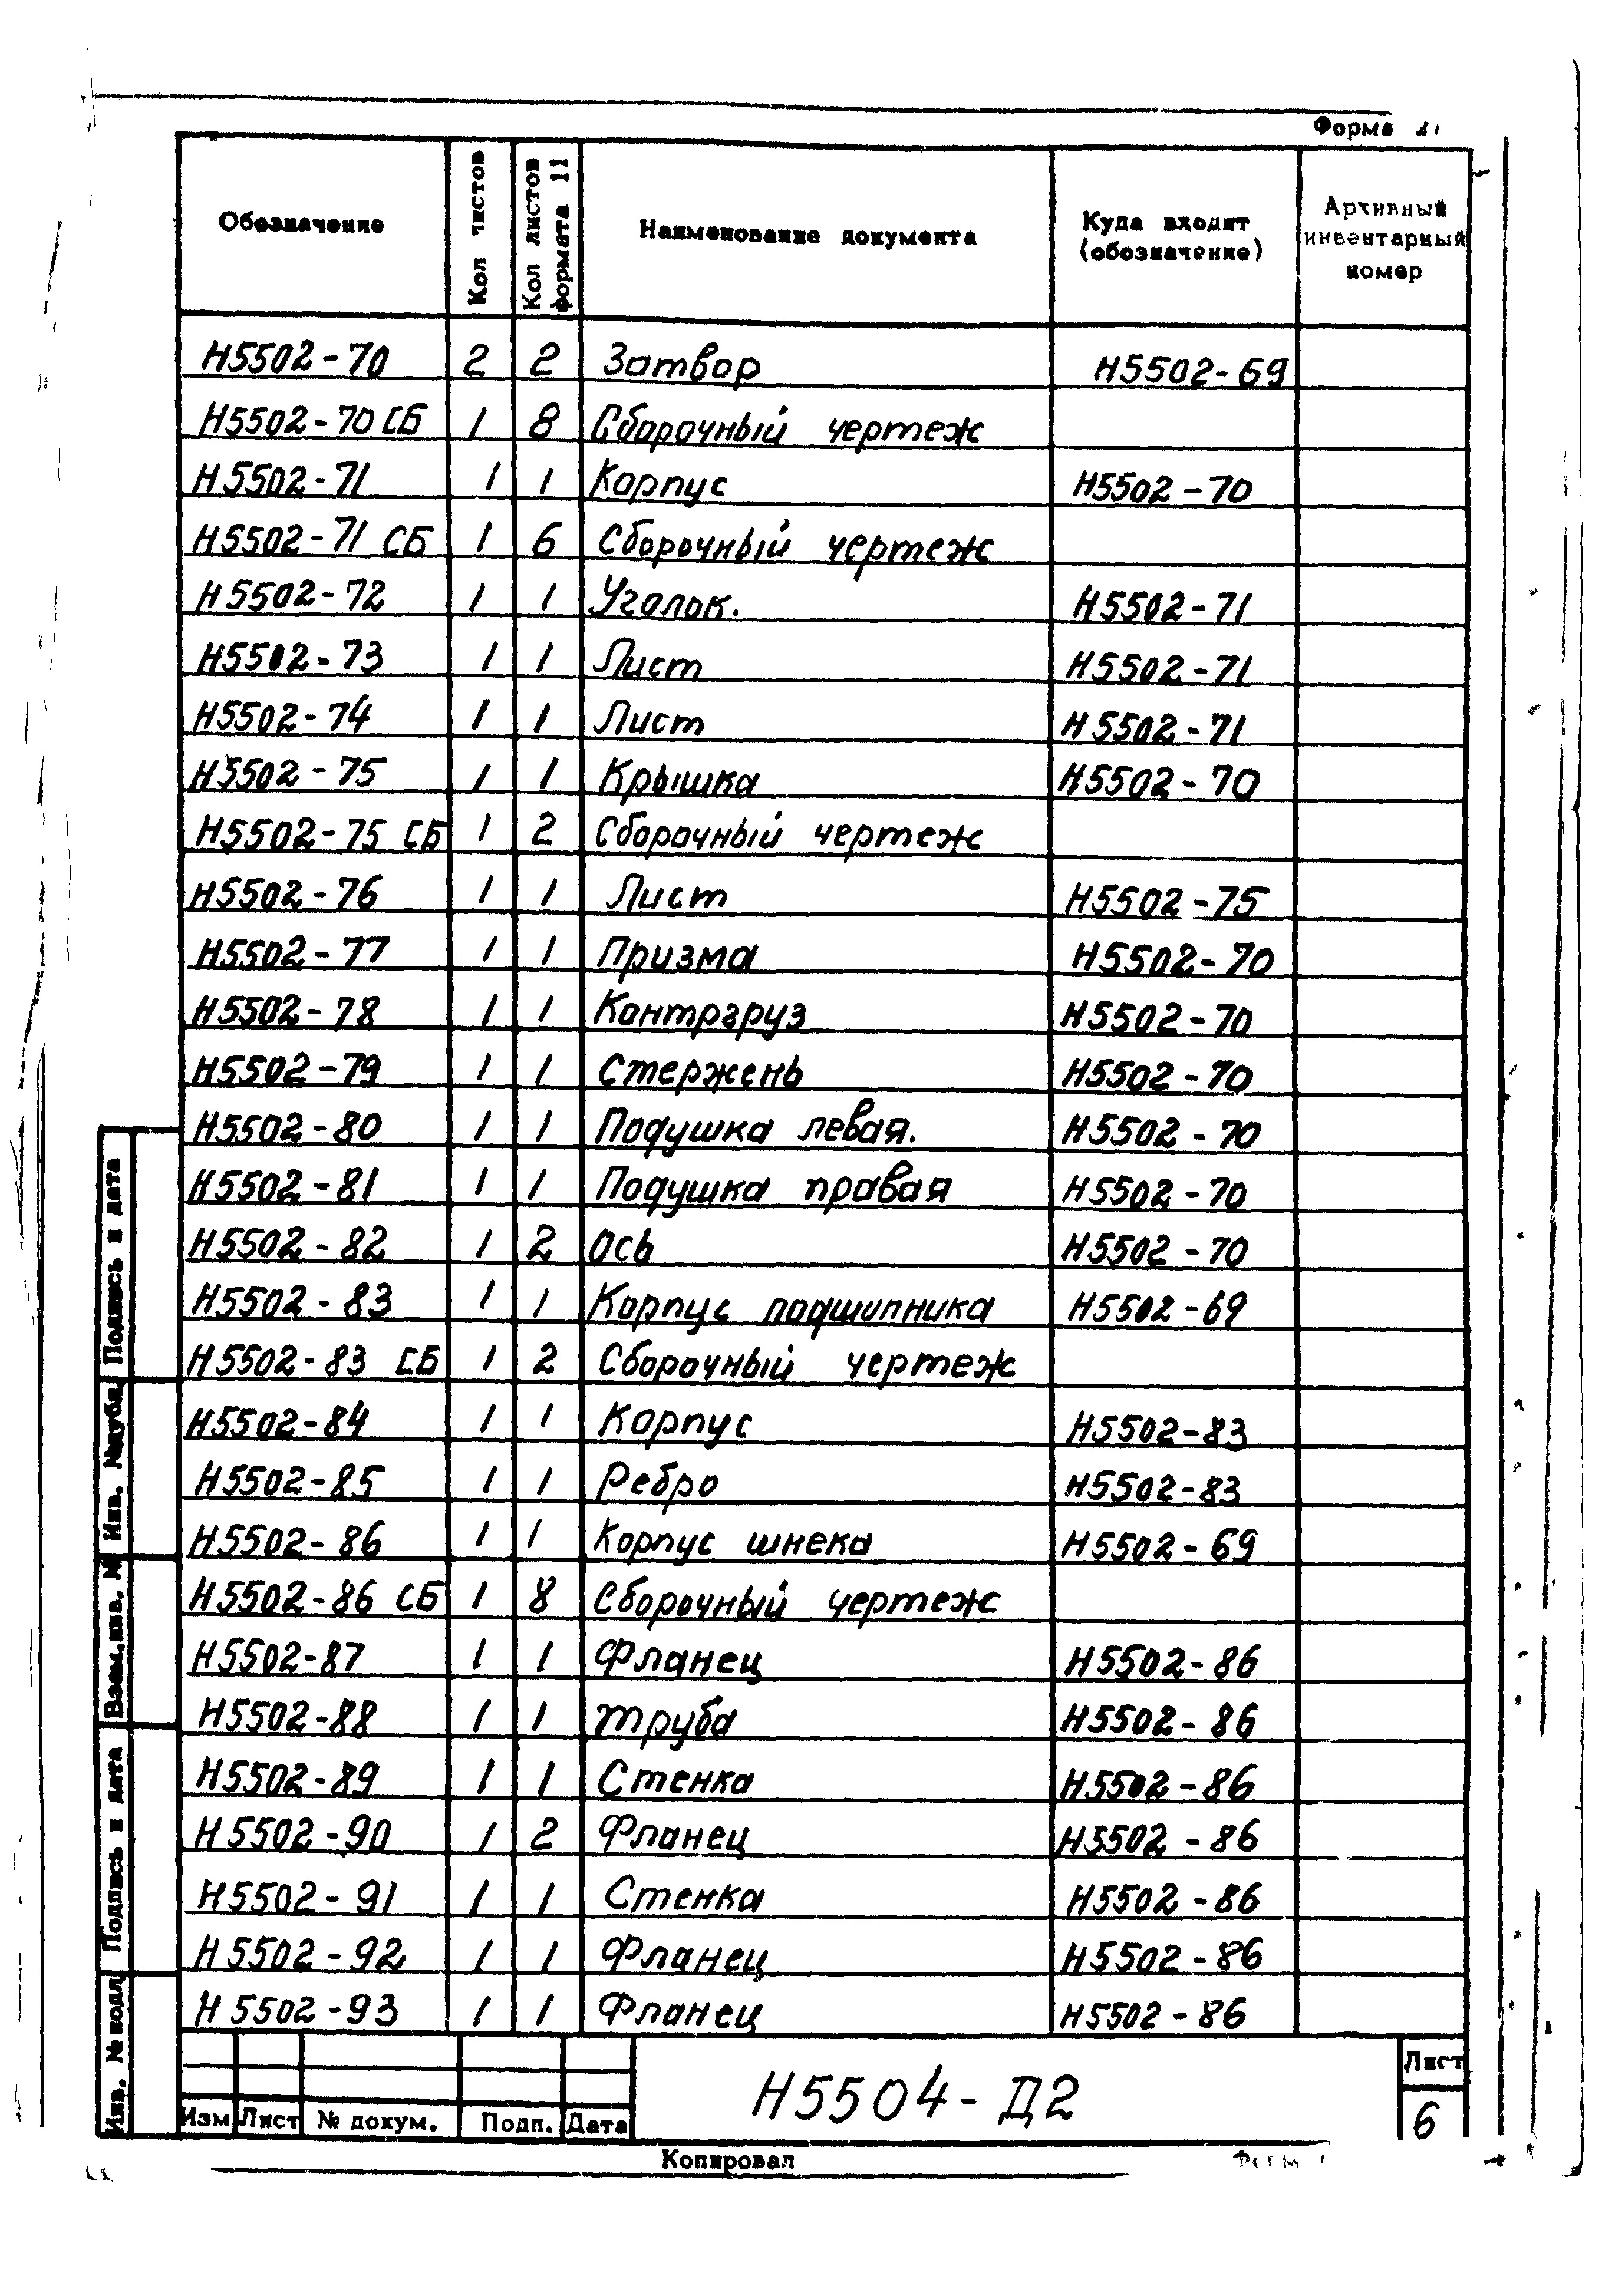 Форма
Обозначение
Кол листов
Кол листов формата 11
Наименование документа
Куда входит (обозначение)
Архивный инвентарный номер
Н5502-70 2 2 Затвор Н5502-69
Н5502-70 СБ 1 8 Сборочный чертеж
Н5502-71 1 1 Корпус Н5502-70
Н5502-71 СБ 1 6 Сборочный чертеж
Н5502-72 1 1 Уголок. Н5502-71
Н5502-73 1 1 Лист Н5502-71
Н5502-74 1 1 Лист Н5502-71
Н5502-75 1 1 Крышка Н5502-70
Н5502-75 СБ 1 2 Сборочный чертеж
Н5502-76 1 1 Лист Н5502-75
Н5502-77 1 1 Призма Н5502-70
Н5502-78 1 1 Контргруз Н5502-70
Н5502-79 1 1 Стержень Н5502-70
Н5502-80 1 1 Подушка левая. Н5502-70
Н5502-81 1 1 Подушка правая Н5502-70
Н5502-82 1 2 Ось Н5502-70
Н5502-83 1 1 Корпус подшипника Н5502-69
Н5502-83 СБ 1 2 Сборочный чертеж
Н5502-84 1 1 Корпус Н5502-83
Н5502-85 1 1 Ребро Н5502-83
Н5502-86 1 1 Корпус шнека Н5502-69
Н5502-86 СБ 1 8 Сборочный чертеж
Н5502-87 1 1 Фланец Н5502-86
Н5502-88 1 1 Труба Н5502-86
Н5502-89 1 1 Стенка Н5502-86
Н5502-90 1 2 Фланец Н5502-86
Н5502-91 1 1 Стенка Н5502-86
Н5502-92 1 1 Фланец Н5502-86
Н5502-93 1 1 Фланец Н5502-86
Подпись и дата
Инв. №дубл.
Взам.инв. №
Подпись и дата
Инв. № подл
Изм Лист № докум. Подп. Дата
Н5504-Д2
Лист
6
Копировал